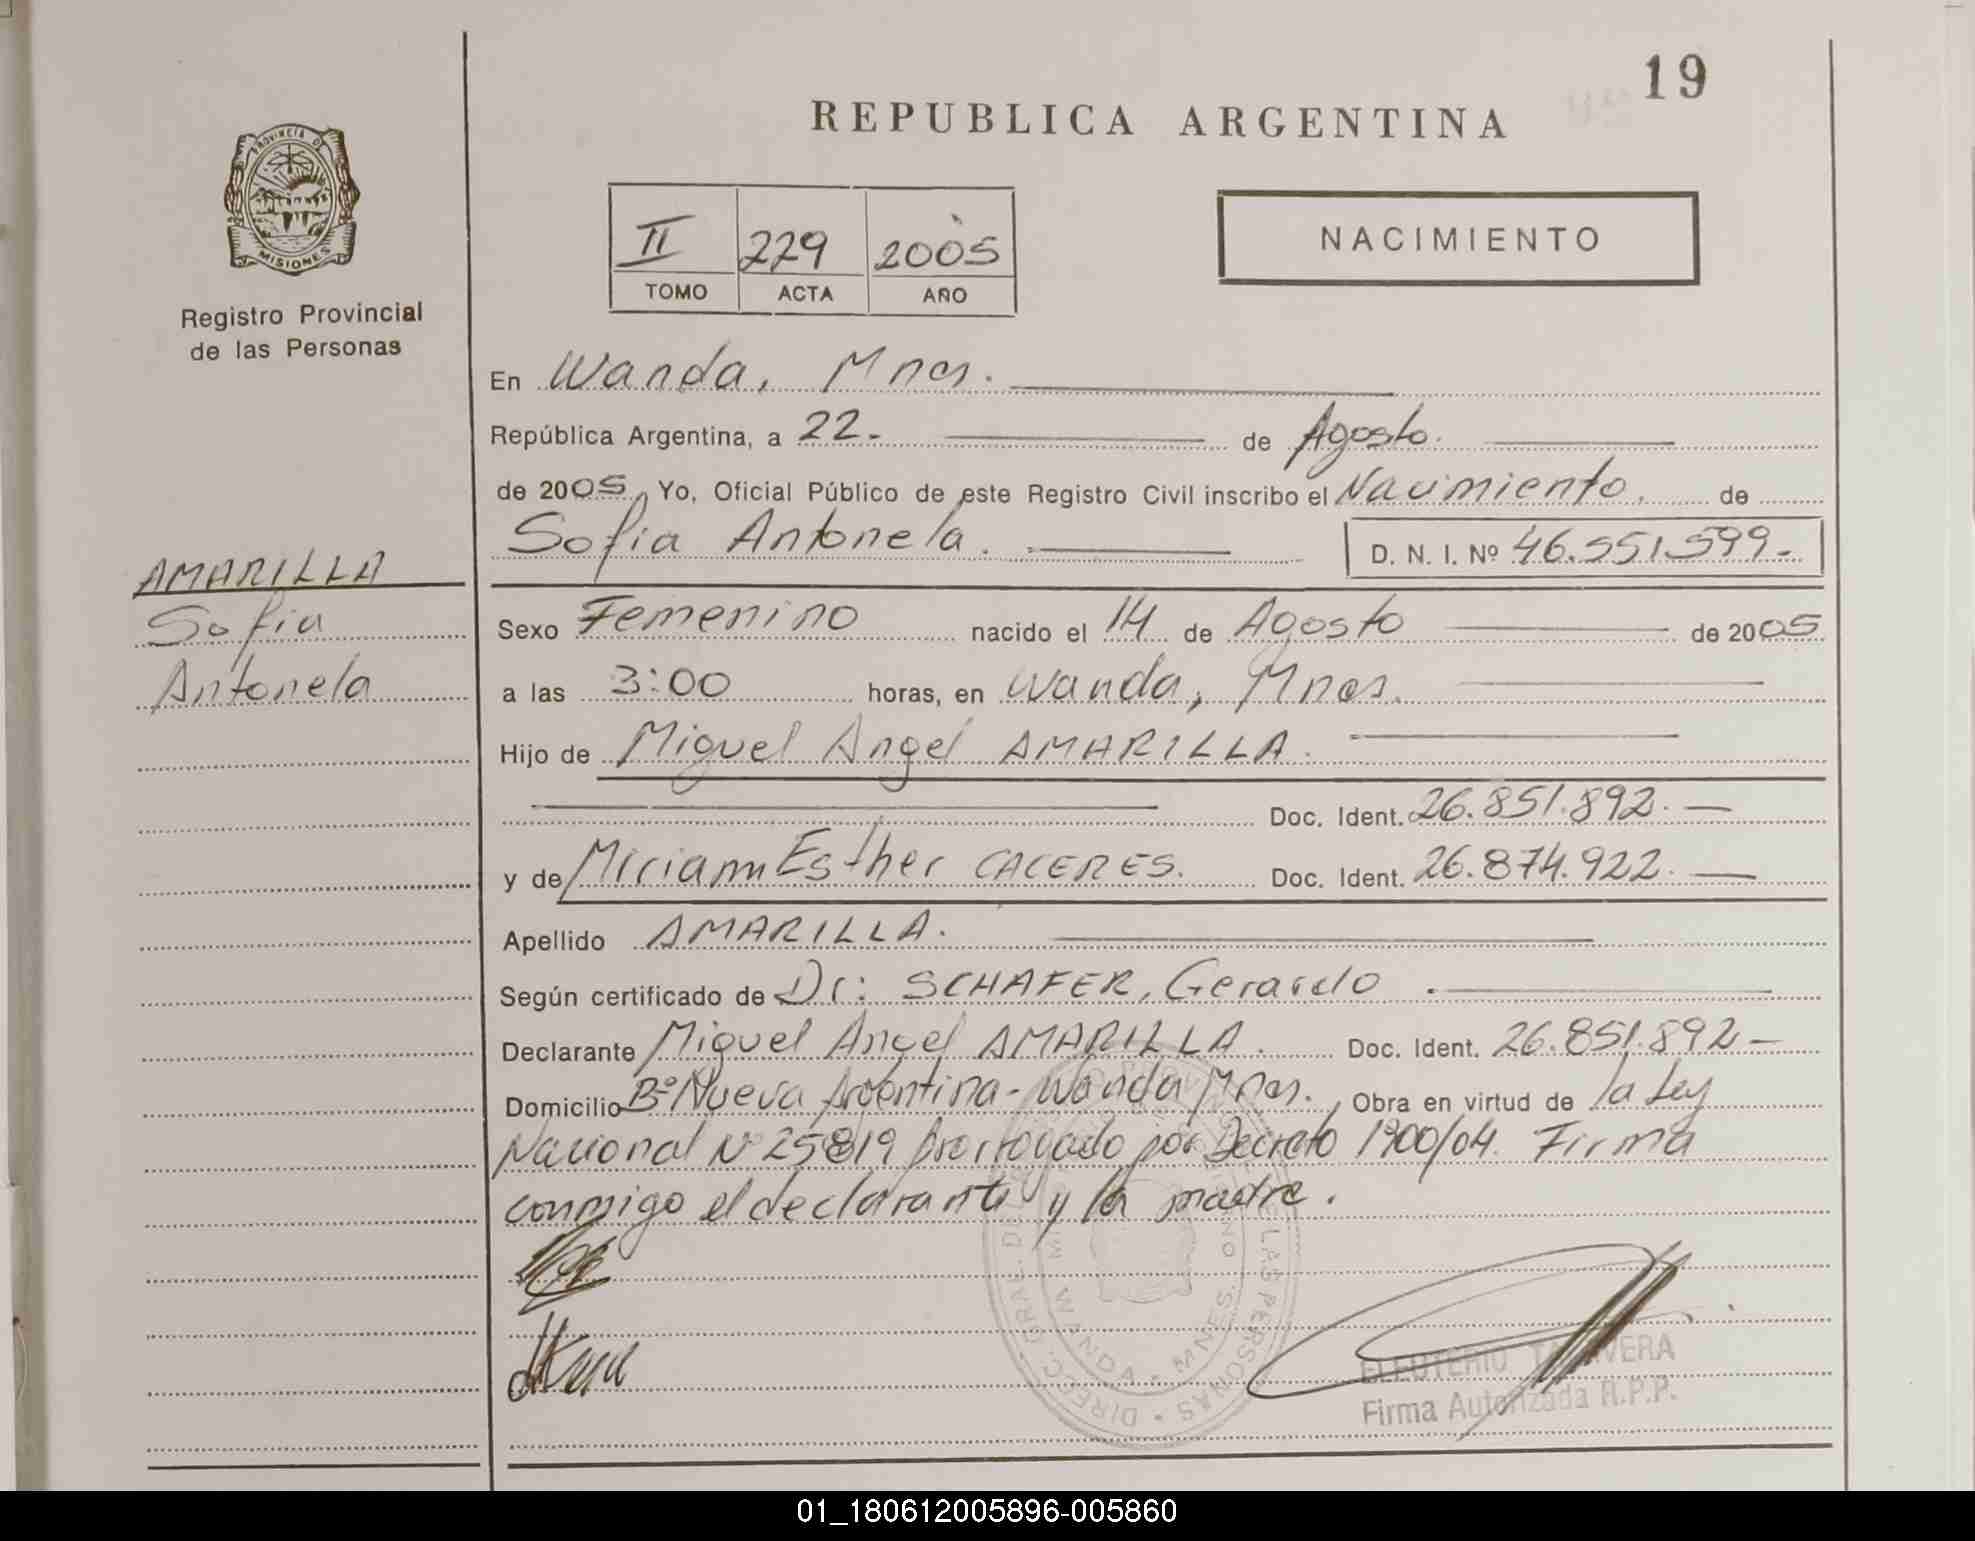 19
REPUBLICA ARGENTINA
PROVINCIA DE
MISIONES
Registro Provincial
de las Personas
II 229 2005
TOMO ACTA AÑO
NACIMIENTO
En Wanda, Mnes.
República Argentina, a 22.- de Agosto.
de 2005, Yo, Oficial Público de este Registro Civil inscribo el Nacimiento, de
Sofia Antonela. D. N. I. Nº 46.551.599.-
AMARILLA
Sofia
Antonela
Sexo Femenino nacido el 14 de Agosto de 2005
a las 3:00 horas, en Wanda, Mnes.
Hijo de Miguel Angel AMARILLA.
Doc. Ident. 26.851.892.-
y de Miriam Esther CACERES. Doc. Ident. 26.874.922.-
Apellido AMARILLA.
Según certificado de Dr: SCHAFER, Gerardo.
Declarante Miguel Angel AMARILLA. Doc. Ident. 26.851.892-
Domicilio Bº Nueva Argentina - Wanda Mnes. Obra en virtud de la Ley
Nacional Nº 25819 prorrogado por Decreto 1900/04. Firma
conmigo el declarante y la madre.
DIREC. GRAL. DEL REG. PROV. DE LAS PERSONAS
WANDA - MNES.
ELEUTERIO TALAVERA
Firma Autorizada R.P.P.
01_180612005896-005860